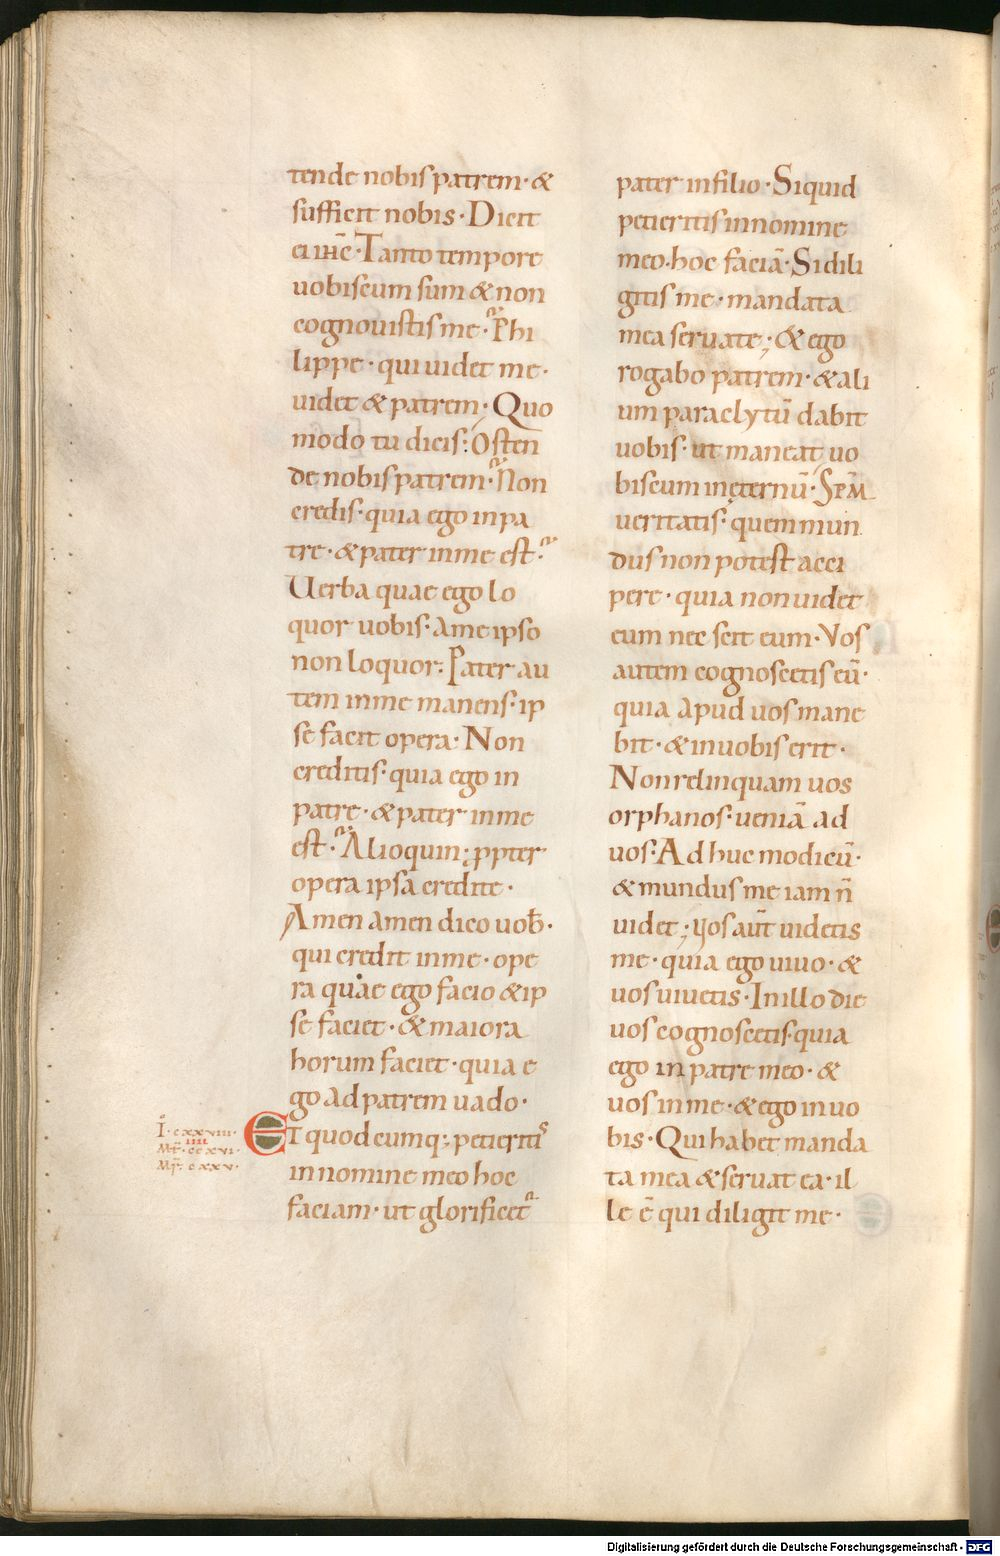 tende nobis patrem· &
sufficit nobis· Dicit
ei ihc̄· Tanto tempore
uobiscum sum & non
cognouistis me· Phi
lippe· qui uidet me·
uidet & patrem· Quo
modo tu dicis: Osten
de nobis patrem· Non
credis· quia ego in pa
tre· & pater in me est·
Uerba quae ego lo
quor uobis· a me ipso
non loquor: Pater au
tem in me manens· ip
se facit opera· Non
creditis· quia ego in
patre· & pater in me
est· Alioquin; ꝓpter
opera ipsa credite·
Amen amen dico uob̄·
qui credit in me· ope
ra quae ego facio & ip
se faciet· & maiora
horum faciet· quia e
go ad patrem uado·
I· cxxviii·
IIII
Mt̄· cclxvi·
Mr̄· cxxv·
Et quodcumq; petieritis
in nomine meo hoc
faciam· ut glorificet᷑
pater in filio· Siquid
petieritis in nomine
meo· hoc faciā· Si dili
gitis me· mandata
mea seruate; & ego
rogabo patrem· & ali
um paraclytū dabit
uobis· ut maneat uo
biscum in ęternū· SPM̄
ueritatis· quem mun
dus non potest acci
pere· quia non uidet
eum nec scit eum· Vos
autem cognoscetis eū·
quia apud uos mane
bit· & in uobis erit·
Non relinquam uos
orphanos· ueniā ad
uos· Adhuc modicū·
& mundus me iam ñ
uidet; Vos aūt uidetis
me· quia ego uiuo· &
uos uiuetis· In illo die
uos cognoscetis· quia
ego in patre meo· &
uos in me· & ego in uo
bis· Qui habet manda
ta mea & seruat ea· il
le ē qui diligit me·
Digitalisierung gefördert durch die Deutsche Forschungsgemeinschaft - DFG